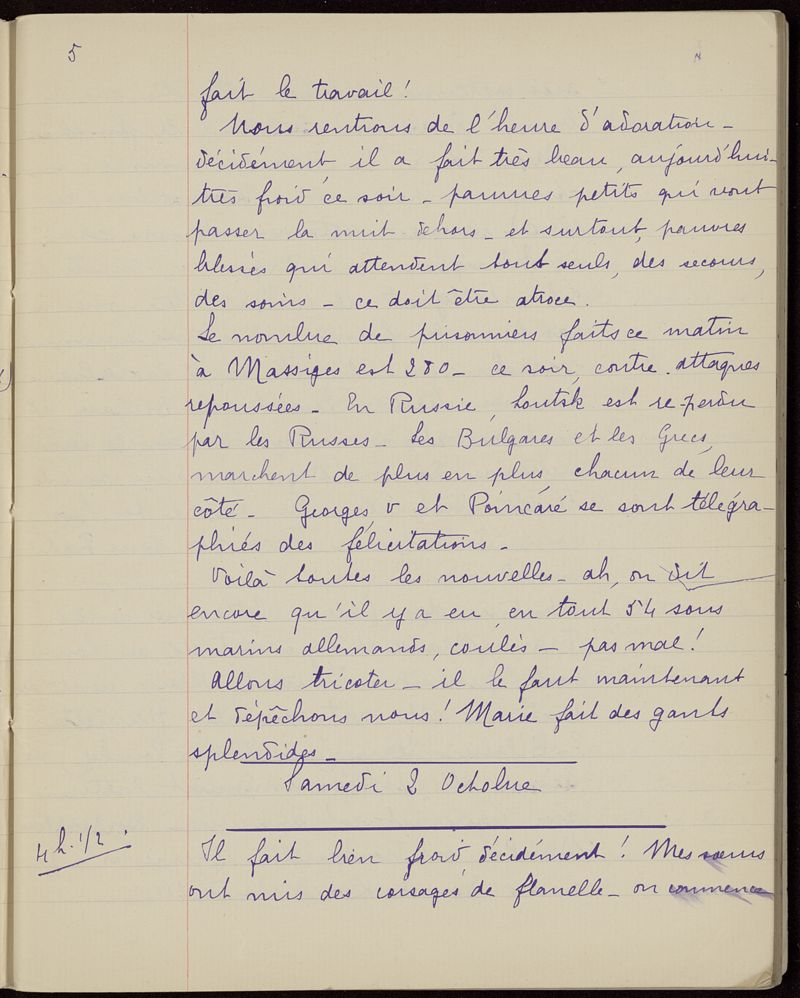 5
fait le travail !
Nous rentrons de l'heure d'adoration -
décidément il a fait très beau, aujourd'hui -
très froid ce soir - pauvres petits qui vont
passer la nuit dehors - et surtout, pauvres
blessés qui attendent tout seuls, des secours,
des soins - ce doit être atroce.
Le nombre de prisonniers faits ce matin
à Massiges est 280 - ce soir, contre-attaques
repoussées - En Russie, Loutsk est re-perdu
par les Russes - Les Bulgares et les Grecs,
marchent de plus en plus, chacun de leur
côté - Georges V et Poincaré se sont télégra-
phiés des félicitations -
Voilà toutes les nouvelles - ah, on dit
encore qu'il y a eu, en tout 54 sous
marins allemands, coulés - pas mal !
Allons tricoter - il le faut maintenant
et dépêchons nous ! Marie fait des gants
splendides -
Samedi 2 Octobre
4 h. 1/2.
Il fait bien froid, décidément ! Mes sœurs
ont mis des corsages de flanelle - on commence